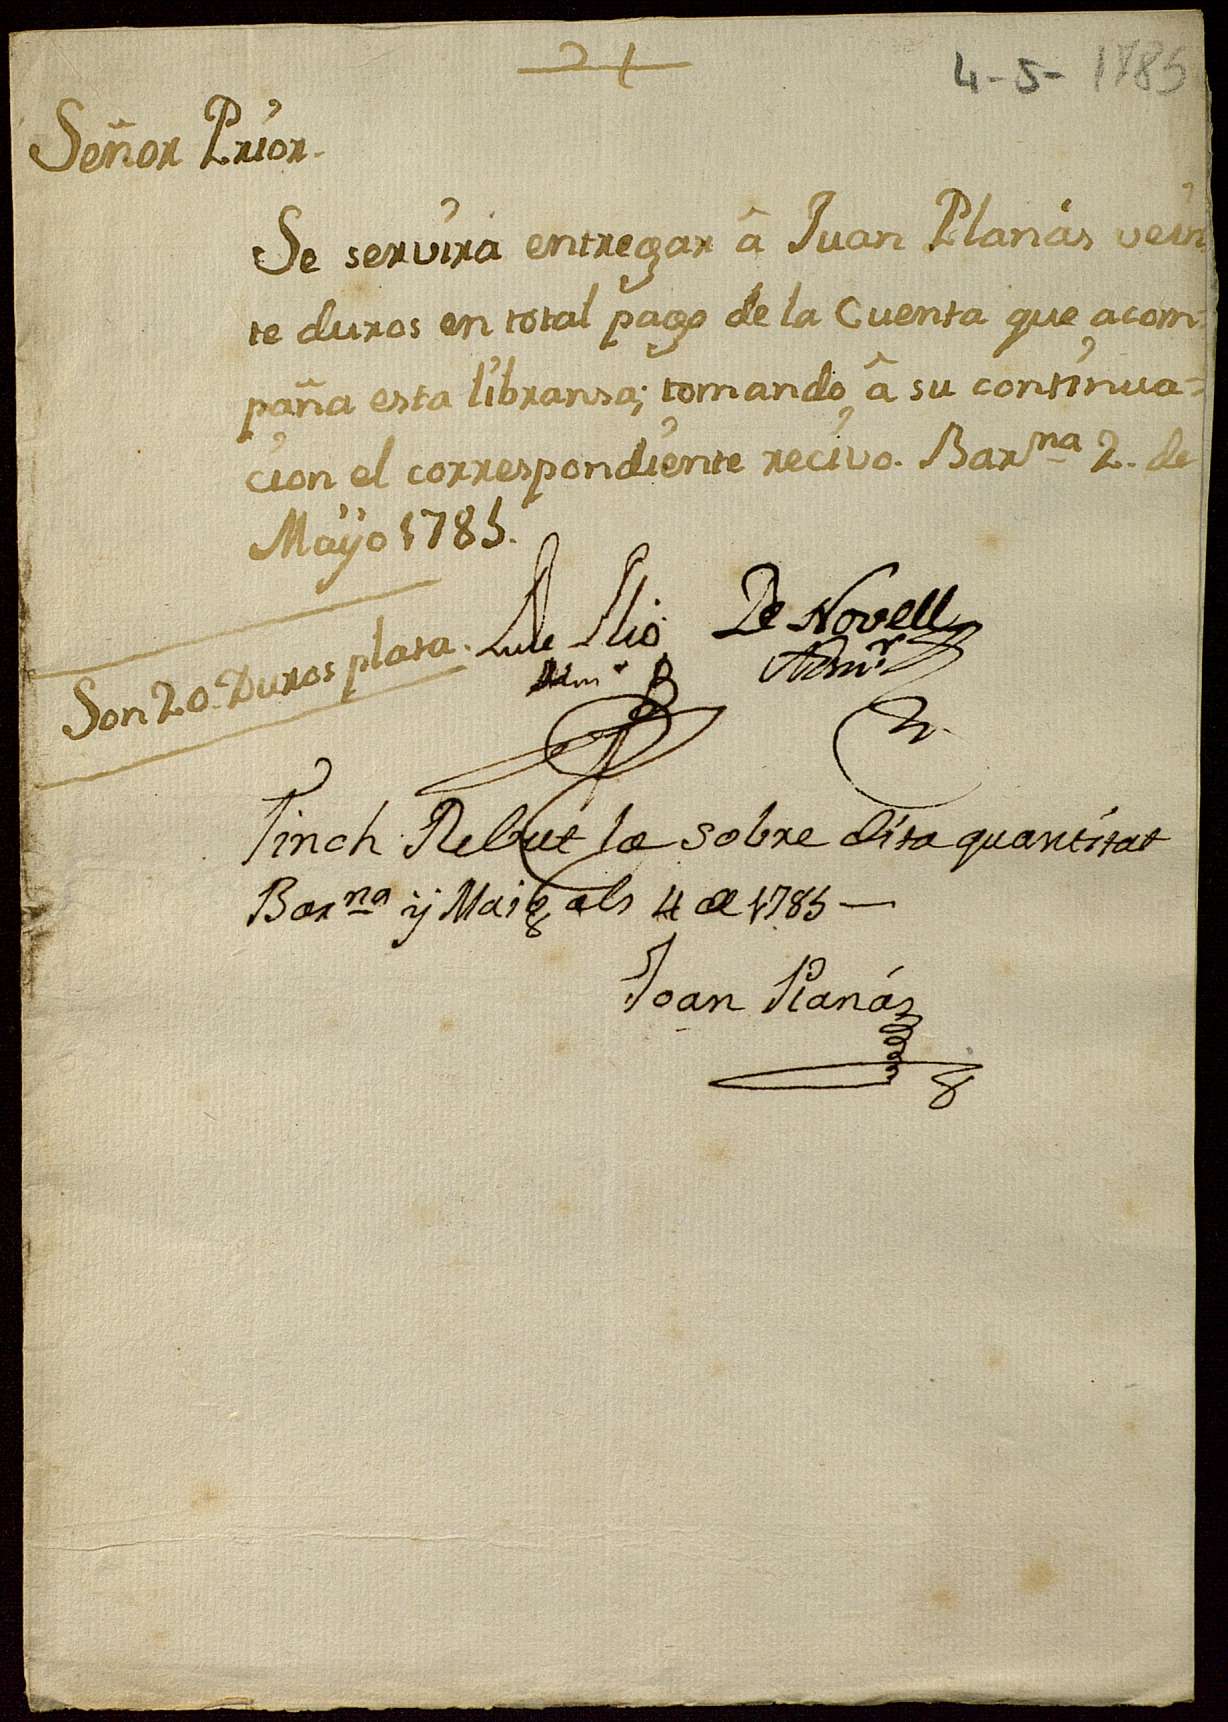 4-5-1785
Señor Prior.
Se servirá entregar â Juan Planás vein
te duros en total pago de la Cuenta que acom-
paña esta libransa; tomando â su continua-
cion el correspondiente recivo. Barna 2. de
Mayo 1785.
De Novell
Admr
Son 20 Duros plata.
Tinch Rebut la sobre dita quantitat
Barna y Maig als 4 de 1785
Joan Planás